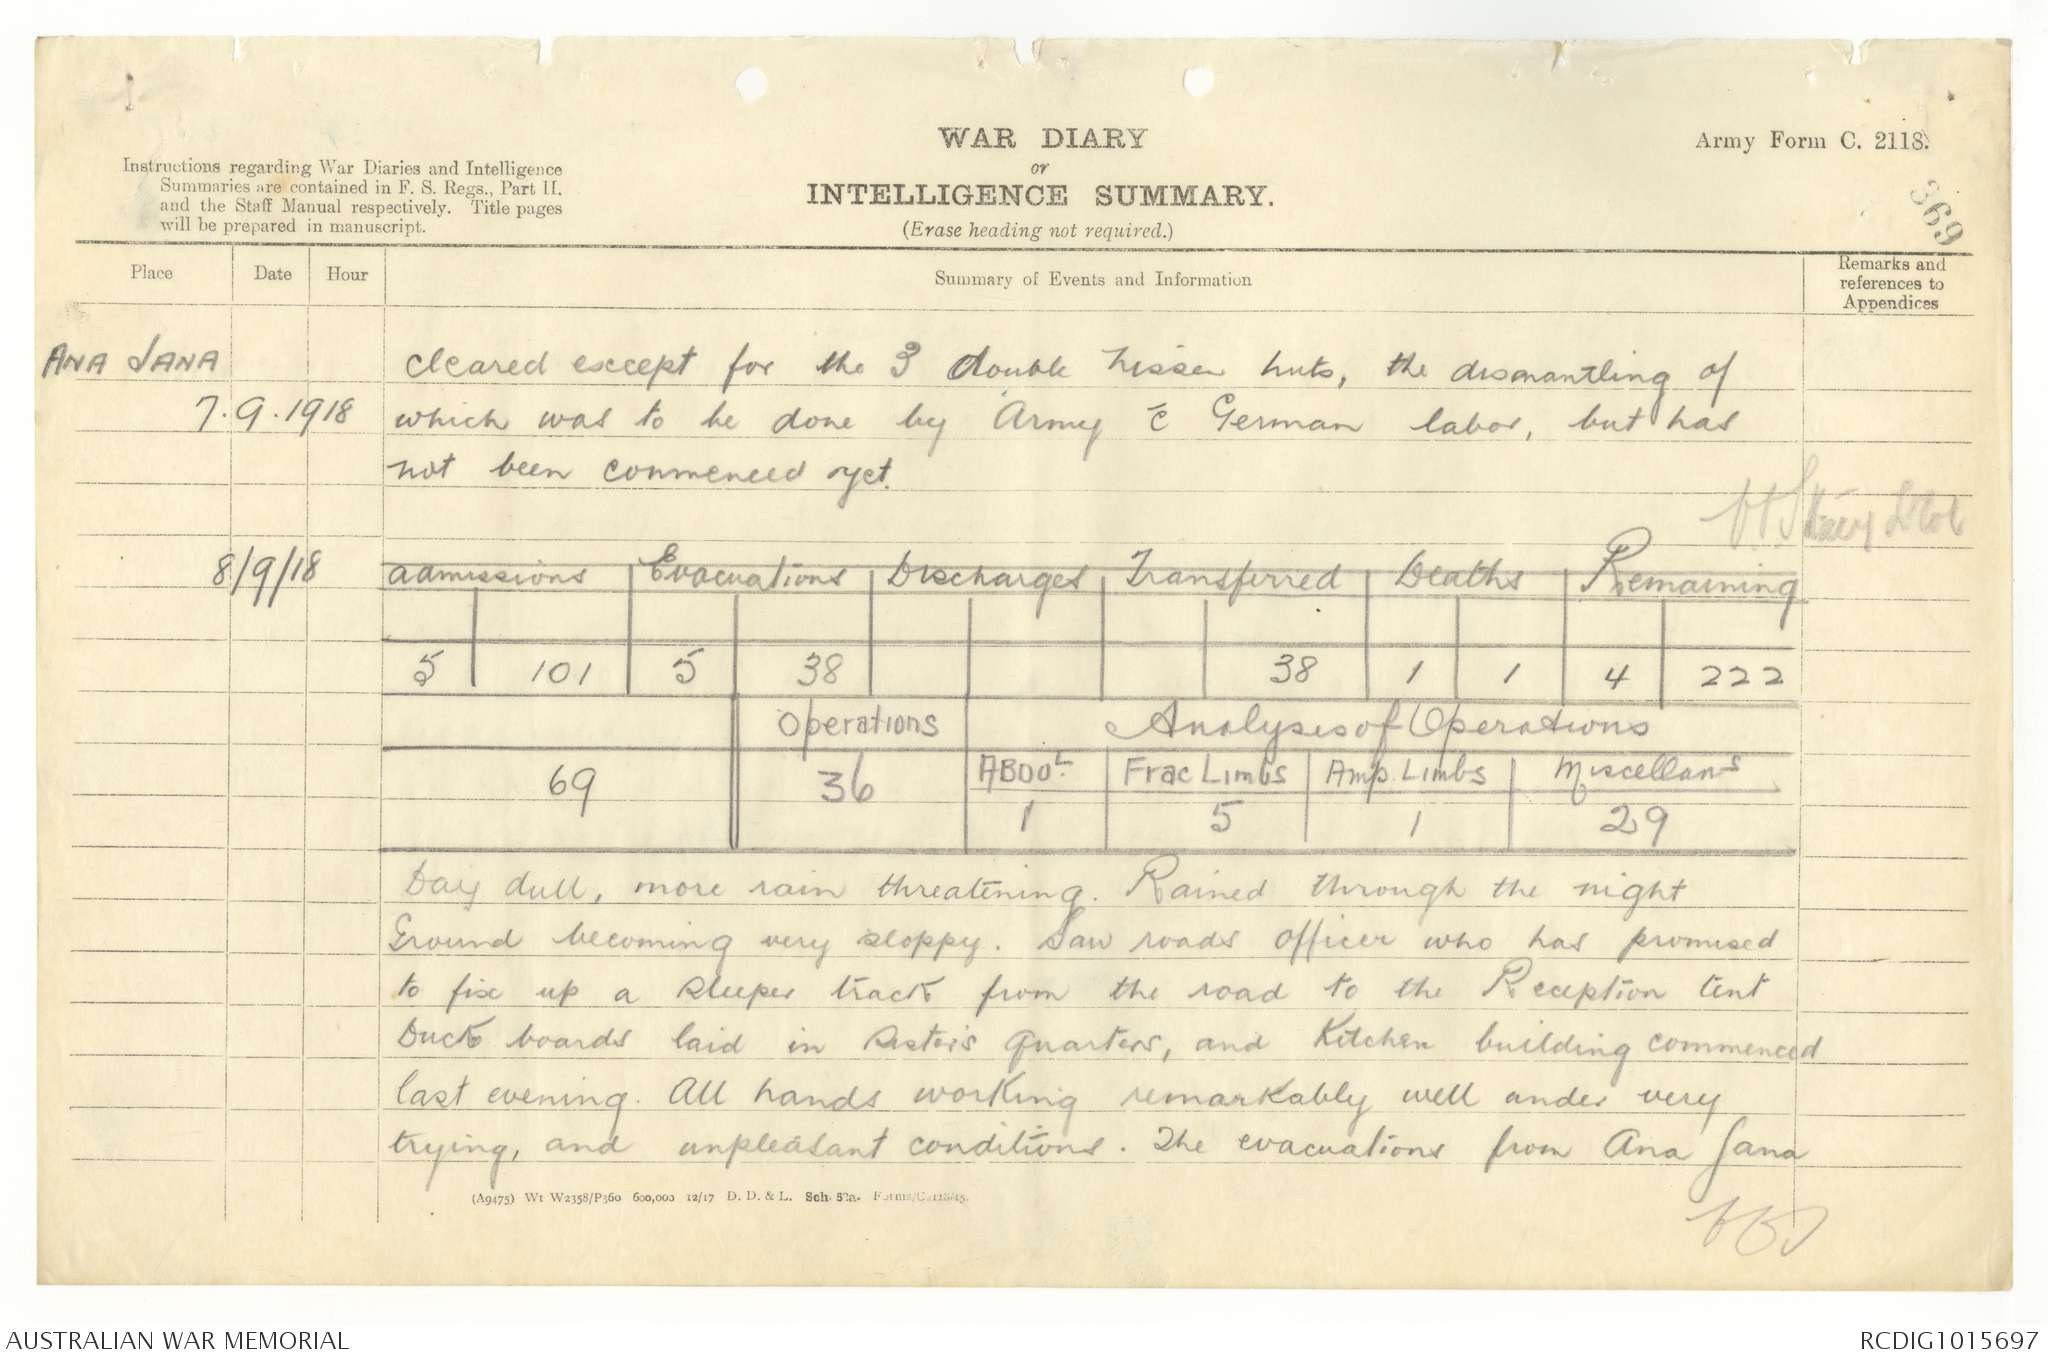 WAR DIARY
or
INTELLIGENCE SUMMARY.
(Erase heading not required.)
Army Form C. 2118.
369
Instructions regarding War Diaries and Intelligence
Summaries are contained in F. S. Regs., Part II.
and the Staff Manual respectively. Title pages
will be prepared in manuscript.
Place Date Hour Summary of Events and Information Remarks and
references to
Appendices
ANA JANA cleared except for the 3 double nissen huts, the dismantling of
7.9.1918 which was to be done by Army c̄ German labor, but has
not been commenced yet.
8/9/18 Admissions Evacuations Discharges Transferred Deaths Remaining
5 101 5 38 38 1 1 4 222
Operations Analysis of Operations
69 36 ABDOL. Frac Limbs Amp. Limbs Miscellans
1 5 1 29
Day dull, more rain threatening. Rained through the night
Ground becoming very sloppy. Saw roads officer who has promised
to fix up a sleeper track from the road to the Reception tent
Duck boards laid in Sister's quarters, and Kitchen building commenced
last evening. All hands working remarkably well under very
trying, and unpleasant conditions. The evacuations from Ana Jana
(A9475) Wt W2358/P360 600,000 12/17 D. D. & L. Sch. 52a. Forms/C.2118/15.
AUSTRALIAN WAR MEMORIAL
RCDIG1015697